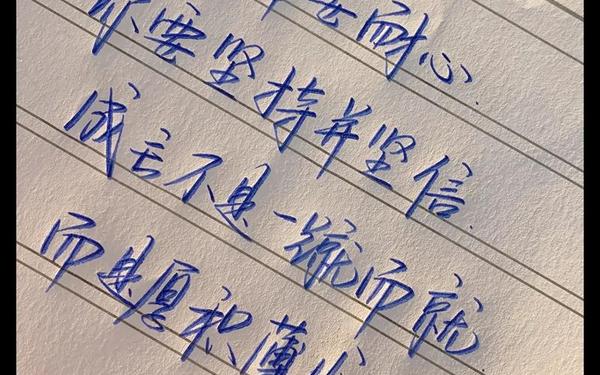 要耐心.
你要坚持并坚信.
成长不是一蹴而就
而是厚积薄